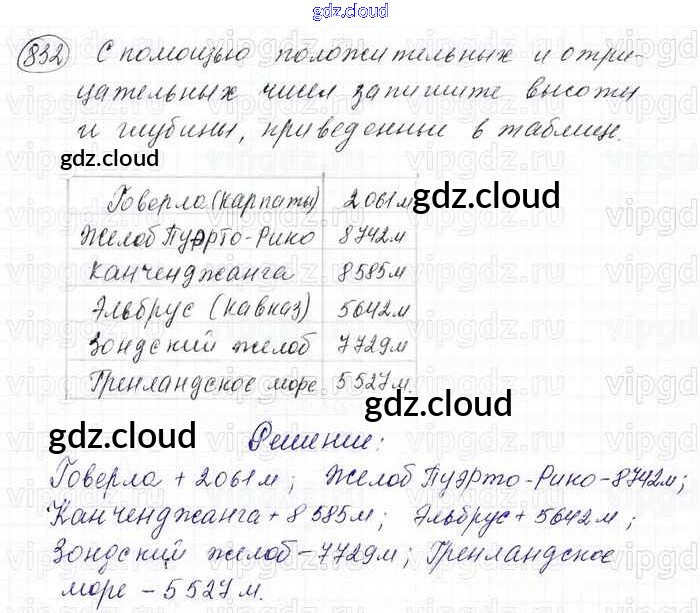 gdz.cloud
832 С помощью положительных и отри-
цательных чисел запишите высоты
и глубины, приведенные в таблице.
gdz.cloud
Говерла (Карпаты) 2061м
gdz.cloud
Желоб Пуэрто-Рико 8742м
Канченджанга 8585м
Эльбрус (Кавказ) 5642м
Зондский желоб 7729м
Гренландское море 5527м.
gdz.cloud
gdz.cloud
Решение:
Говерла + 2061м; Желоб Пуэрто-Рико-8742м;
Канченджанга + 8585м; Эльбрус + 5642м;
Зондский желоб - 7729м; Гренландское
море - 5527м.
gdz.cloud
gdz.cloud